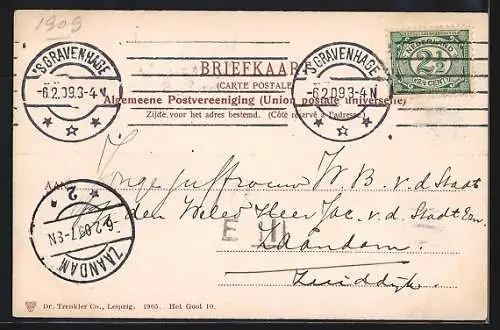 1909
'S GRAVENHAGE
-6.2.09.3-4N
'S GRAVENHAGE
6.2.09.3-4N
NEDERLAND
2½
CENT
BRIEFKAART
(CARTE POSTALE)
Algemeene Postvereeniging (Union postale universelle)
Zijde voor het adres bestemd. (Côté réservé à l'adresse)
AAN
Jongejuffrouw W B. v. d Stadt
den Weled Heer Jac. v. d Stadt
E II
Zaandam.
Zuiddijk.
ZAANDAM
-6.2.09.7-8N
2
Dr. Trenkler Co., Leipzig. 1905. Het Gooi 10.